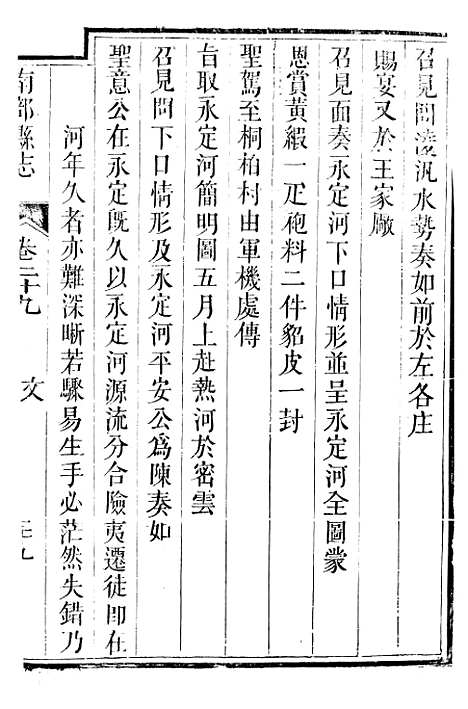 召見問淩汛水勢奏如前於左各庄
賜宴又於王家廠
召見面奏永定河下口情形並呈永定河全圖蒙
恩賞黃緞一疋砲料二件貂皮一封
聖駕至桐柏村由軍機處傳
旨取永定河簡明圖五月上赴熱河於密雲
召見問下口情形及永定河平安公為陳奏如
聖意公在永定既久以永定河源流分合險夷遷徒即在
河年久者亦難深晰若驟易生手必茫然失錯乃
南部縣志
卷二十九
文